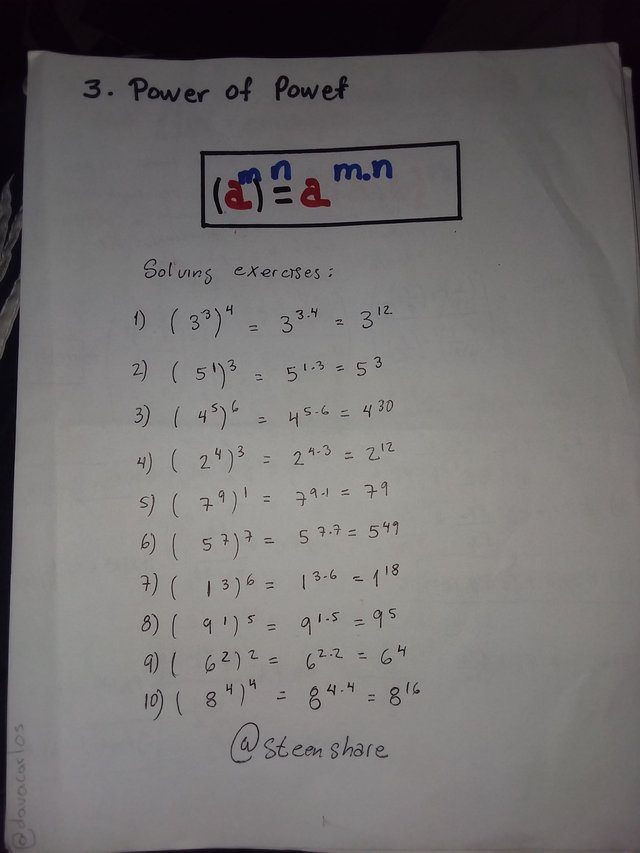 3. Power of Power
(a^m)^n = a^m.n
Solving exercises:
1) (3^3)^4 = 3^3.4 = 3^12
2) (5^1)^3 = 5^1.3 = 5^3
3) (4^5)^6 = 4^5.6 = 4^30
4) (2^4)^3 = 2^4.3 = 2^12
5) (7^9)^1 = 7^9.1 = 7^9
6) (5^7)^7 = 5^7.7 = 5^49
7) (1^3)^6 = 1^3.6 = 1^18
8) (9^1)^5 = 9^1.5 = 9^5
9) (6^2)^2 = 6^2.2 = 6^4
10) (8^4)^4 = 8^4.4 = 8^16
@steenshare
@davacarlos